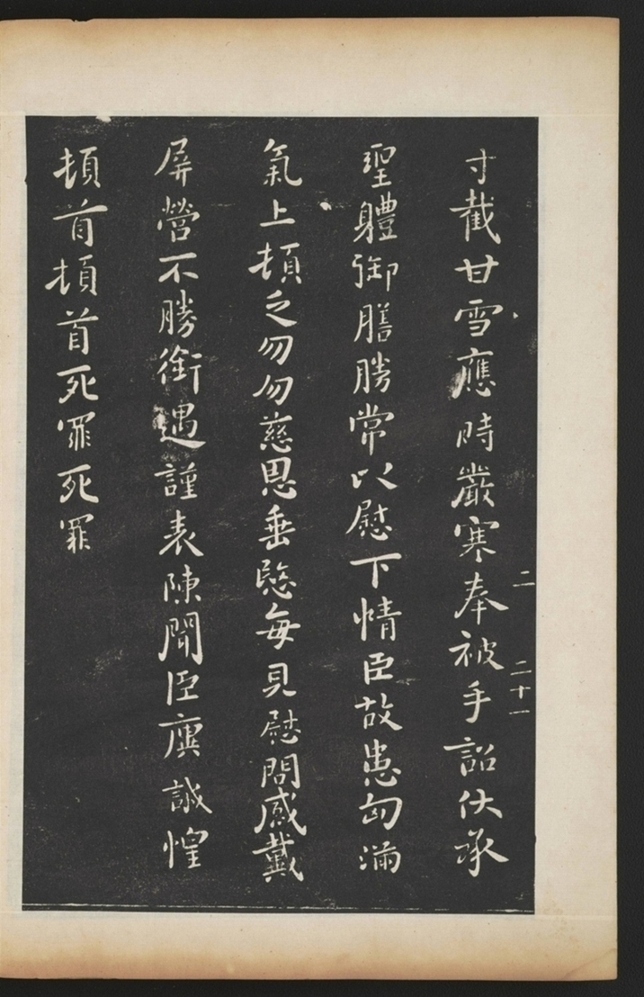 寸截甘雪應時嚴寒奉被手詔伏承
聖體御膳勝常以慰下情臣故患匈滿
氣上頓乏勿勿慈恩垂愍每見慰問感戴
屏營不勝銜遇謹表陳聞臣廙誠惶
頓首頓首死罪死罪
二 二十一